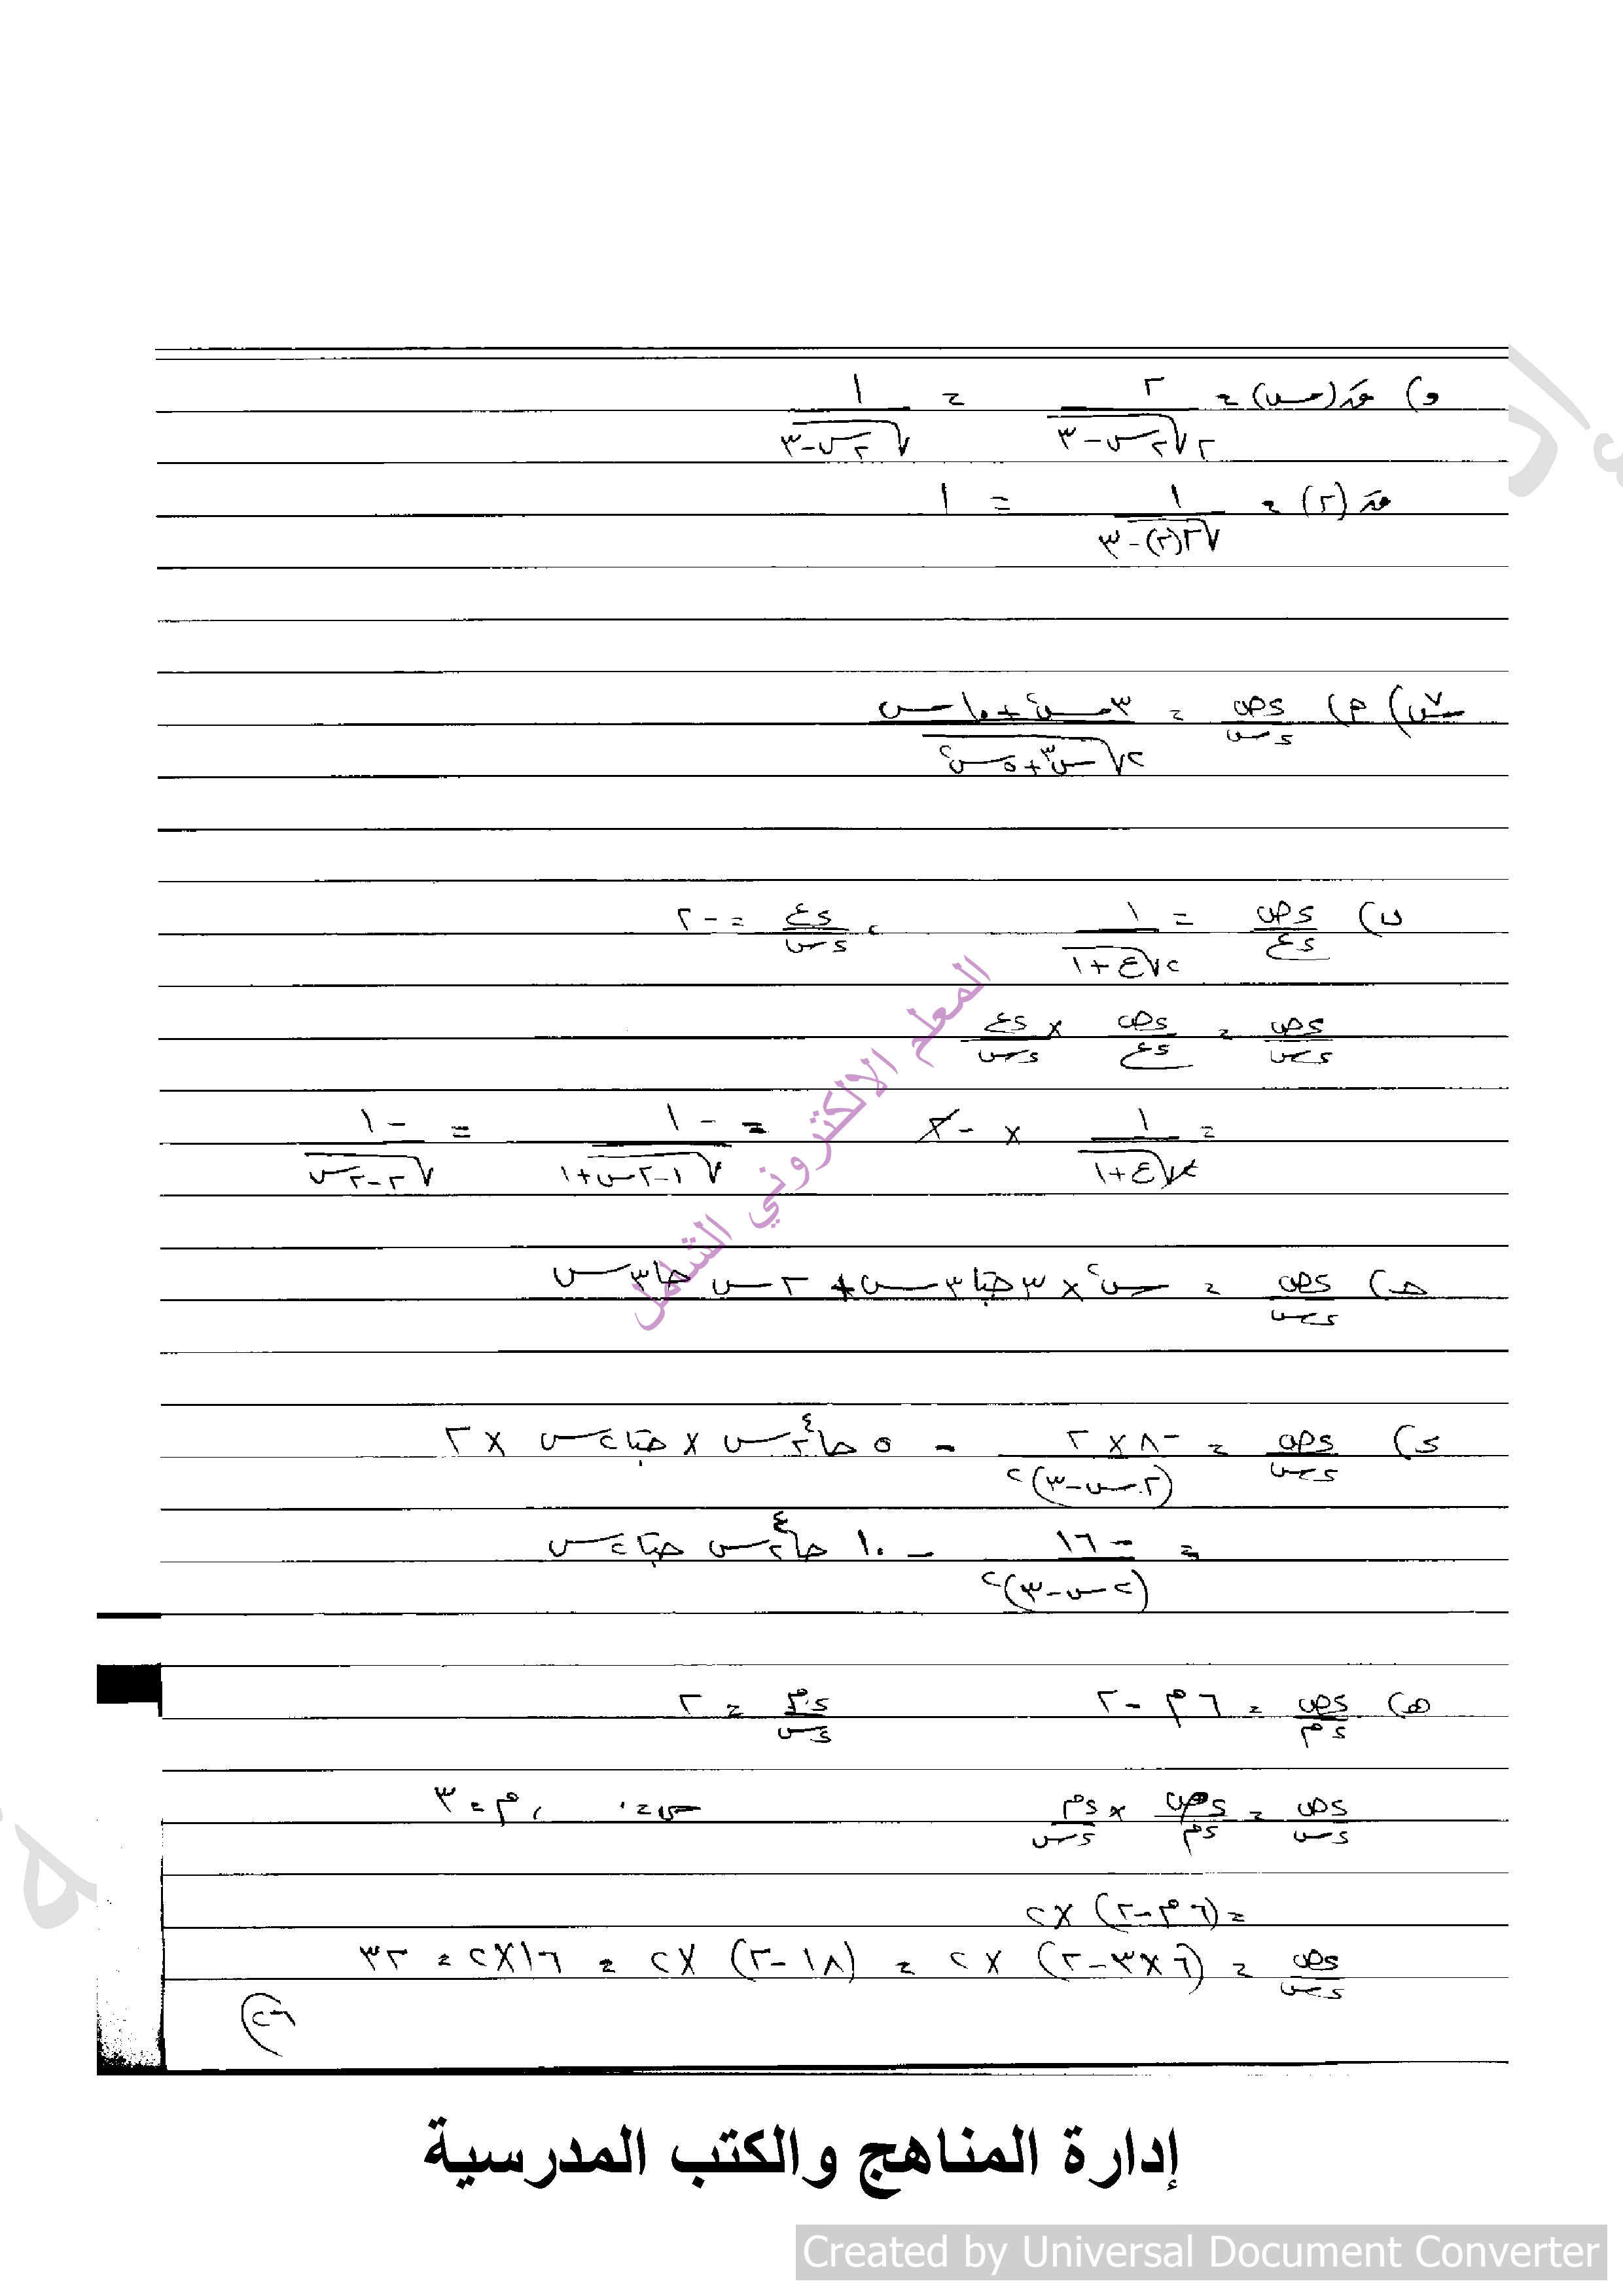 و) قَ(س) = ٢ / ٢√(٢س-٣) = ١ / √(٢س-٣)
قَ(٢) = ١ / √(٢(٢)-٣) = ١
س٧) م) ءص/ءس = (٣س٢ + ١٠س) / ٢√(س٣+٥س٢)
ب) ءص/ءع = ١ / ٢√(ع+١) ، ءع/ءس = -٢
ءص/ءس = ءص/ءع × ءع/ءس
= ١ / ٢√(ع+١) × -٢ = -١ / √(١-٢س+١) = -١ / √(٢-٢س)
حـ) ءص/ءس = س٢ × ٣ حتا٣س + ٢س حا٣س
ء) ءص/ءس = -٨×٢ / (٢س-٣)٢ - ٥ حا٤ ٢س × حتا٢س × ٢
= -١٦ / (٢س-٣)٢ - ١٠ حا٤ ٢س حتا٢س
هـ) ءص/ءم = ٦م - ٢ ءم/ءس = ٢
ءص/ءس = ءص/ءم × ءم/ءس س=٠ ، م=٣
= (٦م-٢) ×٢
ءص/ءس = (٦×٣-٢) × ٢ = (١٨-٢) ×٢ = ١٦×٢ = ٣٢
٢٦
المعلم الالكتروني الشامل
إدارة المناهج والكتب المدرسية
Created by Universal Document Converter